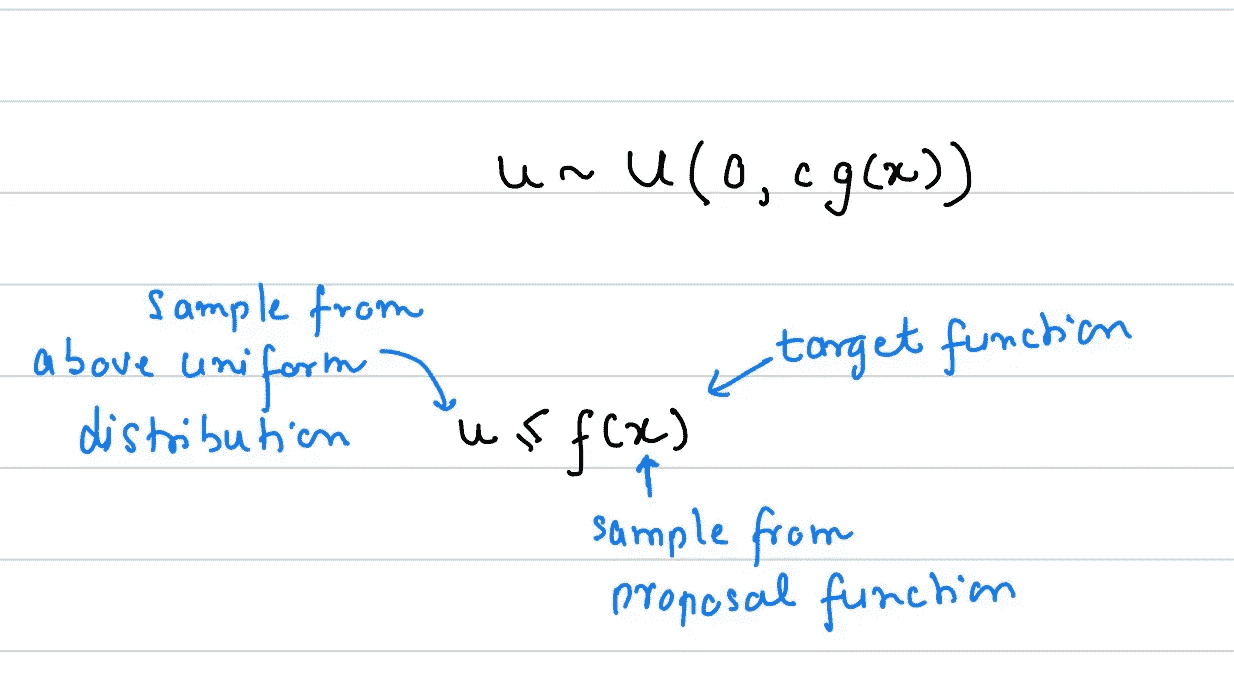 u ~ U(0, cg(x))
sample from
above uniform
distribution
target function
u ≤ f(x)
sample from
proposal function